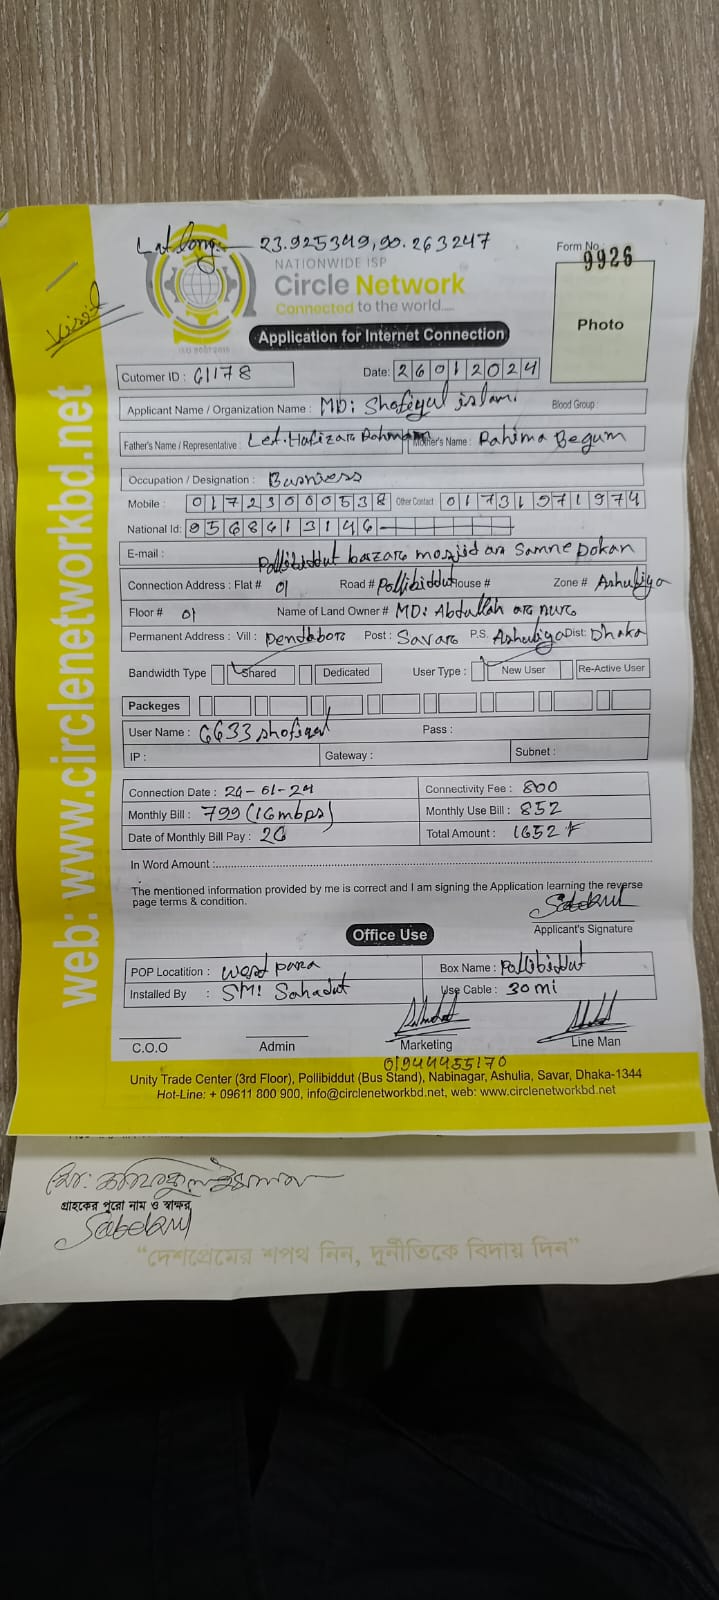 Lat long:- 23.925349,90.263247
NATIONWIDE ISP
Circle Network
Connected to the world.....
ISO 9001:2015
Form No. 9926
Photo
Application for Internet Connection
Cutomer ID : G1178 Date: 26012024
Applicant Name / Organization Name : MD: Shofiqul islam. Blood Group :
Father's Name / Representative : Let. Hafizar Rahman Mother's Name : Rahima Begum
Occupation / Designation : Business
Mobile : 01723000538 Other Contact 01731971974
National Id: 9568613146
E-mail :
Pollibiddut bazar mosjid ar Samne Dokan
Connection Address : Flat # 01 Road # Pollibiddut House # Zone # Ashuliya
Floor # 01 Name of Land Owner # MD: Abdullah ar nur
Permanent Address : Vill : Dendabor Post : Savar P.S. Ashuliya Dist: Dhaka
Bandwidth Type Shared Dedicated User Type : New User Re-Active User
Packeges
User Name : G633 shofiqul Pass :
IP : Gateway : Subnet :
Connection Date : 26-01-24 Connectivity Fee : 800
Monthly Bill : 799 (16mbps) Monthly Use Bill : 852
Date of Monthly Bill Pay : 26 Total Amount : 1652
In Word Amount :
The mentioned information provided by me is correct and I am signing the Application learning the reverse
page terms & condition.
Applicant's Signature
Office Use
POP Locatition : West para Box Name : Pollibiddut
Installed By : SM: Sahadut Use Cable : 30 mi
C.O.O Admin Marketing Line Man
01944455170
Unity Trade Center (3rd Floor), Pollibiddut (Bus Stand), Nabinagar, Ashulia, Savar, Dhaka-1344
Hot-Line: + 09611 800 900, info@circlenetworkbd.net, web: www.circlenetworkbd.net
web: www.circlenetworkbd.net
গ্রাহকের পুরো নাম ও স্বাক্ষর
"দেশপ্রেমের শপথ নিন, দুর্নীতিকে বিদায় দিন"